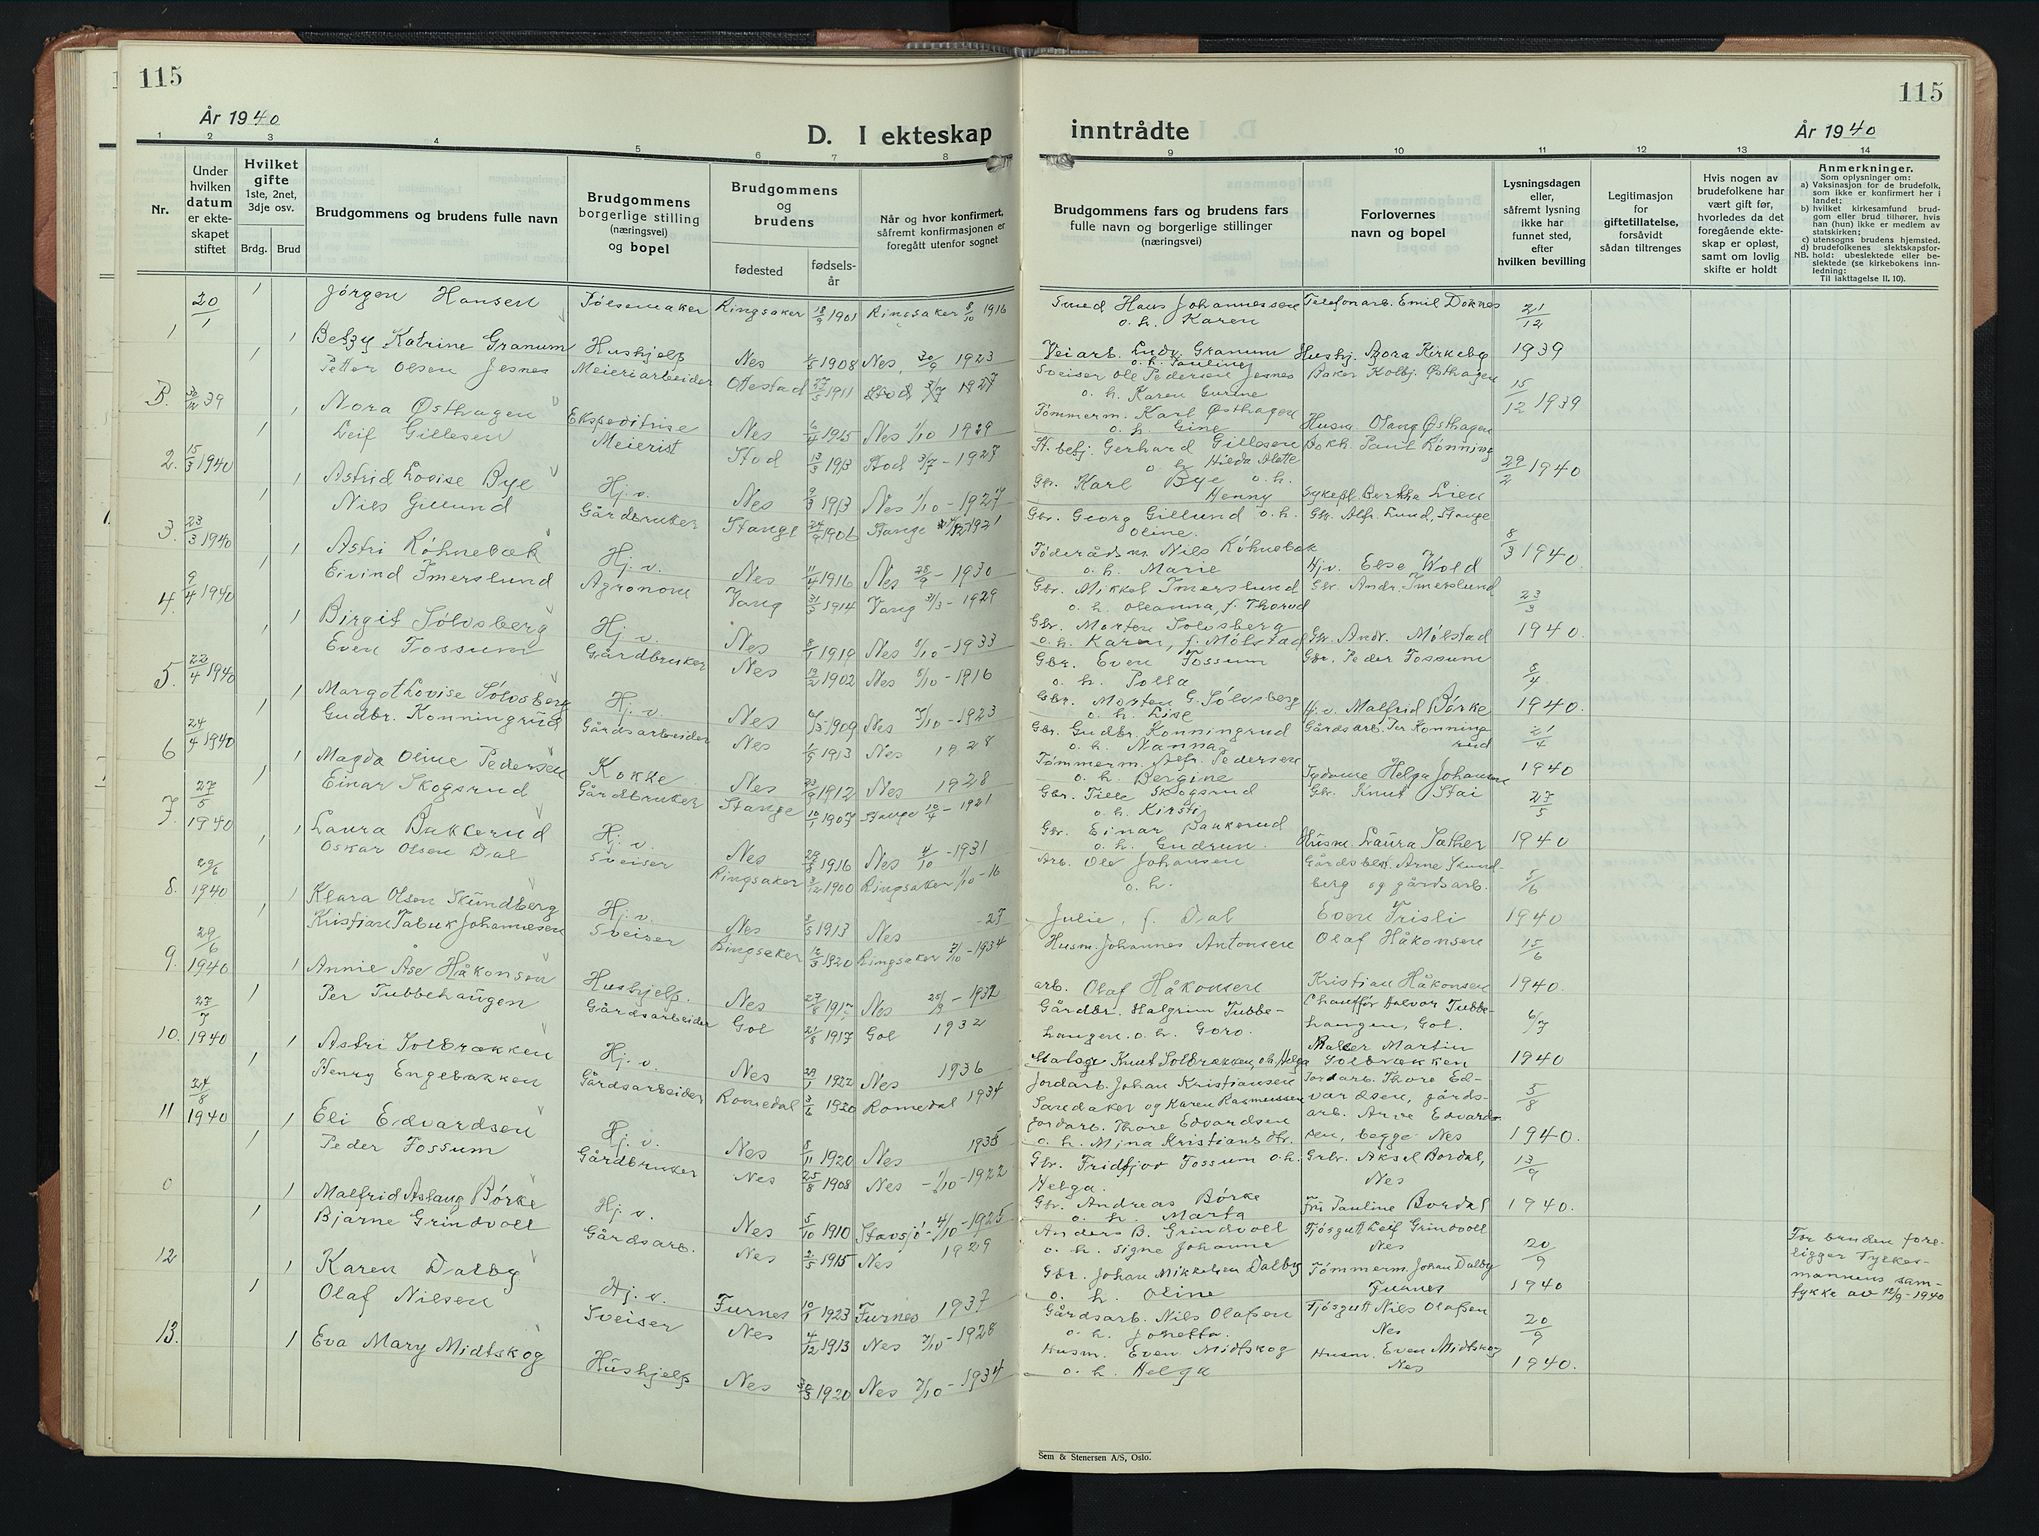 115
År 1940
D. I ekteskap
1 2 3 4 5 6 7 8
Nr.
Under hvilken datum er ekteskapet stiftet
Hvilket gifte 1ste, 2net, 3dje osv.
Brdg. Brud
Brudgommens og brudens fulle navn
Brudgommens borgerlige stilling (næringsvei) og bopel
Brudgommens og brudens
fødested fødselsår
Når og hvor konfirmert, såfremt konfirmasjonen er foregått utenfor sognet
1 20/1 1 Jørgen Hansen Ringsaker 18/9 1901 Ringsaker 8/10 1916
1 Betzy Katrine Granum Hushjelp Nes 1908 Nes, 30/9 1923
B. 39 1 Petter Olsen Jesnes Meieriarbeider Ottestad 27/5 1911 1927
1 Nora Østhagen Ekspeditrise Nes 6/4 1915 Nes 1/10 1929
2. 15/3 1940 1 Leif Gillesen Meierist Stod 13/3 1913 Stod 3/7 - 1927
Astrid Lovise Bye Hj. v. Nes 9/3 1913 Nes 1/10 - 1927
3. 23/3 1940 1 Nils Gillund Gårdbruker Stange 24/9 1906 Stange 1921
1 Astri Røhnebæk Hj. v. Nes 11/4 1916 Nes 28/9 - 1930
4. 9/4 1940 1 Eivind Imerslund Agronom Vang 31/5 1914 Vang 31/3 - 1929
1 Birgit Sølvsberg Hj. v. Nes 8/1 1919 Nes 1/10 - 1933
5. 22/4 1940 1 Even Fossum Gårdbruker Nes 19/2 1902 Nes 8/10 - 1916
1 Margot Lovise Sølvsberg Hj. v. Nes 1909 Nes 7/10 - 1923
6 24/4 1940 1 Gudbr. Konningrud Gårdsarbeider Nes 1913 Nes 1928
1 Magda Oline Pedersen Kokke Nes 1912 Nes 1928
7. 27/5 1940 1 Einar Skogsrud Gårdbruker Stange 10/1 1907 Stange 10/4 - 1921
1 Laura Bakkerud Hj. v. Nes 29/8 1916 Nes 4/10 - 1931
8. 29/6 1940 1 Oskar Olsen Dal Sveiser Ringsaker 3/12 1900 Ringsaker 1/10 - 16
1 Klara Olsen Skundberg Hj. v. Nes 3/5 1913 Nes - 27
9. 29/6 1940 1 Kristian Tabuk Johannesen Sveiser Ringsaker 1920 Ringsaker 1934
1 Annie Åse Håkonsen Hushjelp. Nes 27/8 Nes 1932
10. 27/7 1940 1 Per Tubbehaugen Gårdsarbeider Gol 21/8 1917 Gol 1932
1 Astri Solbrækken Hj. v. Nes 29/1 1922 Nes 1936
11 24/8 1940 1 Henry Engebakken Gårdsarbeider Romedal 3/6 1920 Romedal 1934
1 Eli Edvardsen Hj. v. Nes 8/11 1920 Nes 1935
0 1 Peder Fossum Gårdbruker Nes 25/8 1908 Nes - 1/10 - 1922
1 Malfrid Aslaug Børke Hj. v. Nes 5/10 1910 Stavsjø - 4/10 - 1925
12 1 Bjarne Grindvoll Gårdsarb. Nes 2/5 1915 Nes 1929
1 Karen Dalby Hj. v. Furnes 10/1 1923 Furnes 1937
13. 1 Olaf Nilsen Sveiser Nes 4/12 1913 Nes 7/10 - 1928
1 Eva Mary Midtskog Hushjelp Nes 30/3 1920 Nes 7/10 - 1934
115
inntrådte
År 1940
9 10 11 12 13 14
Brudgommens fars og brudens fars fulle navn og borgerlige stillinger (næringsvei)
Forlovernes navn og bopel
Lysningsdagen eller, såfremt lysning ikke har funnet sted, efter hvilken bevilling
Legitimasjon for giftetillatelse, forsåvidt sådan tiltrenges
Hvis nogen av brudefolkene har vært gift før, hvorledes da det foregående ekteskap er opløst, samt om lovlig skifte er holdt
Anmerkninger.
Som oplysninger om:
a) Vaksinasjon for de brudefolk, som ikke er konfirmert her i landet;
b) hvilket kirkesamfund brudgom eller brud tilhører, hvis han (hun) ikke er medlem av statskirken;
c) utensogns brudens hjemsted.
d) brudefolkenes slektskapsforhold: ubeslektede eller beslektede (se kirkebokens innledning:
NB. Til iakttagelse II. 10).
Smed Hans Johannessen Telefonarb. Emil Doknes 21/12
o. h. Karen
Veiarb. Ludv. Granum Hushj. Aora Kirkeby 1939
o. h. Pauline
Sveiser Ole Pedersen Jesnes Baker Kolbj. Østhagen 15/12 1939
o. h. Karen Gurine
Tømmerm. Karl Østhagen
o. h. Gine Husm. Olang Østhagen
St. betj. Gerhard Gillesen Bokh. Paul Rønning
o. h. Hilda Alette 29/2 1940
Gbr. Karl Bye o. h.
Henny Sykepl. Berthe Lien
Gbr. Georg Gillund o. h. Gbr. Alfr. Lund, Stange
Oline. 8/3 1940.
Føderådsm. Nils Røhnebæk
o. h. Marie Hj. v. Else Wold
Gbr. Mikkel Imerslund Gbr. Andr. Imerslund
o. h. Oleanna, f. Thorud 23/3
Gbr. Morten Sølvsberg 1940.
o. h. Karen, f. Mølstad Gbr. Andr. Mølstad
Gbr. Even Fossum Gbr. Peder Fossum 8/4
o. h. Polla
Gbr. Morten G. Sølvsberg 1940.
o. h. Lise Hj. v. Malfrid Børke
Gbr. Gudbr. Konningrud Gårdsarb. Per Konningrud 21/4
o. h. Nanna
Tømmerm. Alfr. Pedersen 1940
o. h. Bergine Sydame Helga Johansen
Gbr. Skogsrud Gbr. Knut Stai 27/5
o. h. Kirsti
Gbr. Einar Bakkerud 1940
o. h. Gudrun. Husm. Laura Sæther
Arb. Ole Johansen Gårdsbest. Arne Skundberg og gårdsarb. 5/6
o. h.
Julie, f. Dal Even Frisli 1940
Husm. Johannes Antonsen Olaf Håkonsen 15/6
arb. Olaf Håkonsen Kristian Håkonsen 1940.
Gårdbr. Halgrim Tubbehaugen o. h. Goro. Chauffør Halvor Tubbehaugen, Gol. 6/7
Knut Solbrækken, o. h. Helga Maler Martin Solbrækken 1940
Jordarb. Johan Kristiansen Jordarb. Thore Ed-
Saredaker og Karen Rasmussen vardsen, gårds- 5/8
Jordarb. Thore Edvardsen arb. Arne Edvard-
o. h. Mina Kristiansdtr. sen, begge Nes 1940.
Gbr. Fridtjov Fossum o. h. Grbr. Aksel Bordal, 13/9
Helga. Nes
Gbr. Andreas Børke Frk Pauline Bordal 1940.
o. h. Marta
Anders B. Grindvoll Fjøsgutt Leif Grindvoll 20/9
o. h. Signe Johanne Nes
Gbr. Johan Mikkelsen Dalby Tømmerm. Johan Dalby
o. h. Oline Furnes 1940
Gårdsarb. Nils Olafsen Fjøsgutt Nils Olafsen 20/9
o. h. Jonetta. Nes
Husm. Even Midtskog Husm. Even Midtskog 1940.
o. h. Helga Nes
For bruden fore-
ligger Fylkes-
mannens sam-
tykke av 12/9 - 1940
Sem & Stenersen A/S, Oslo.